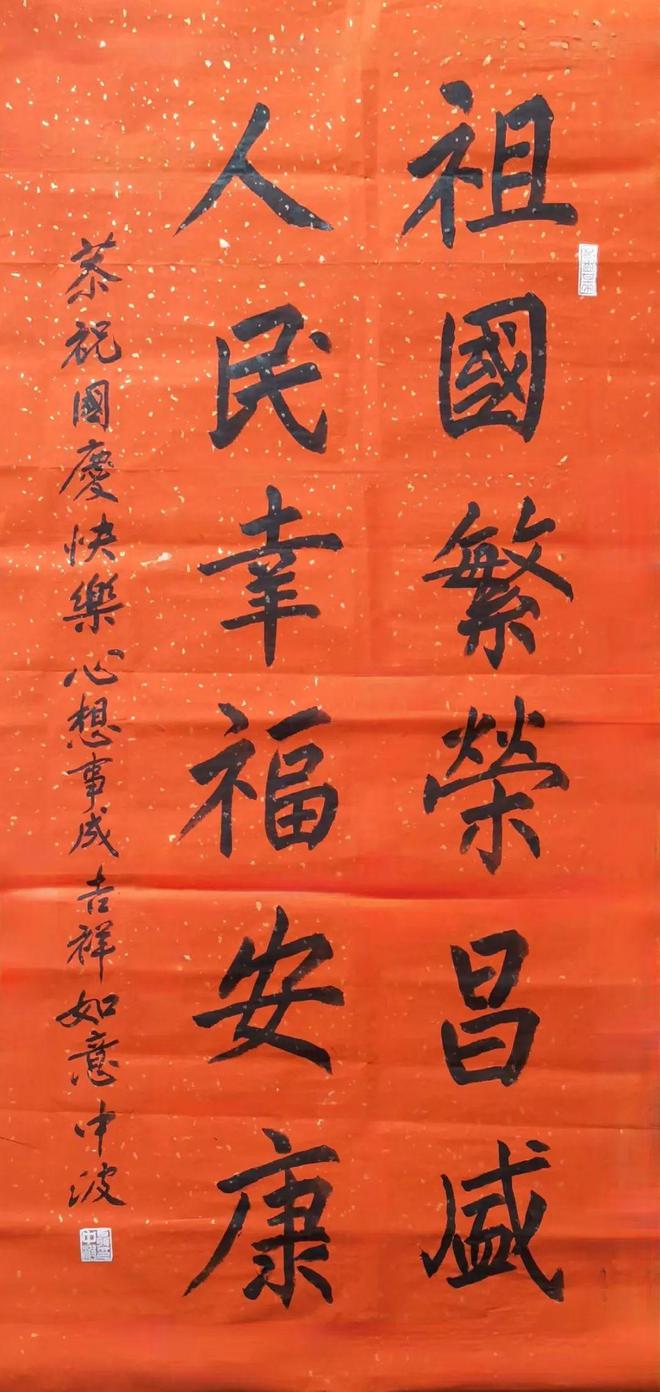 祖國繁榮昌盛
人民幸福安康
恭祝國慶快樂心想事成吉祥如意中波